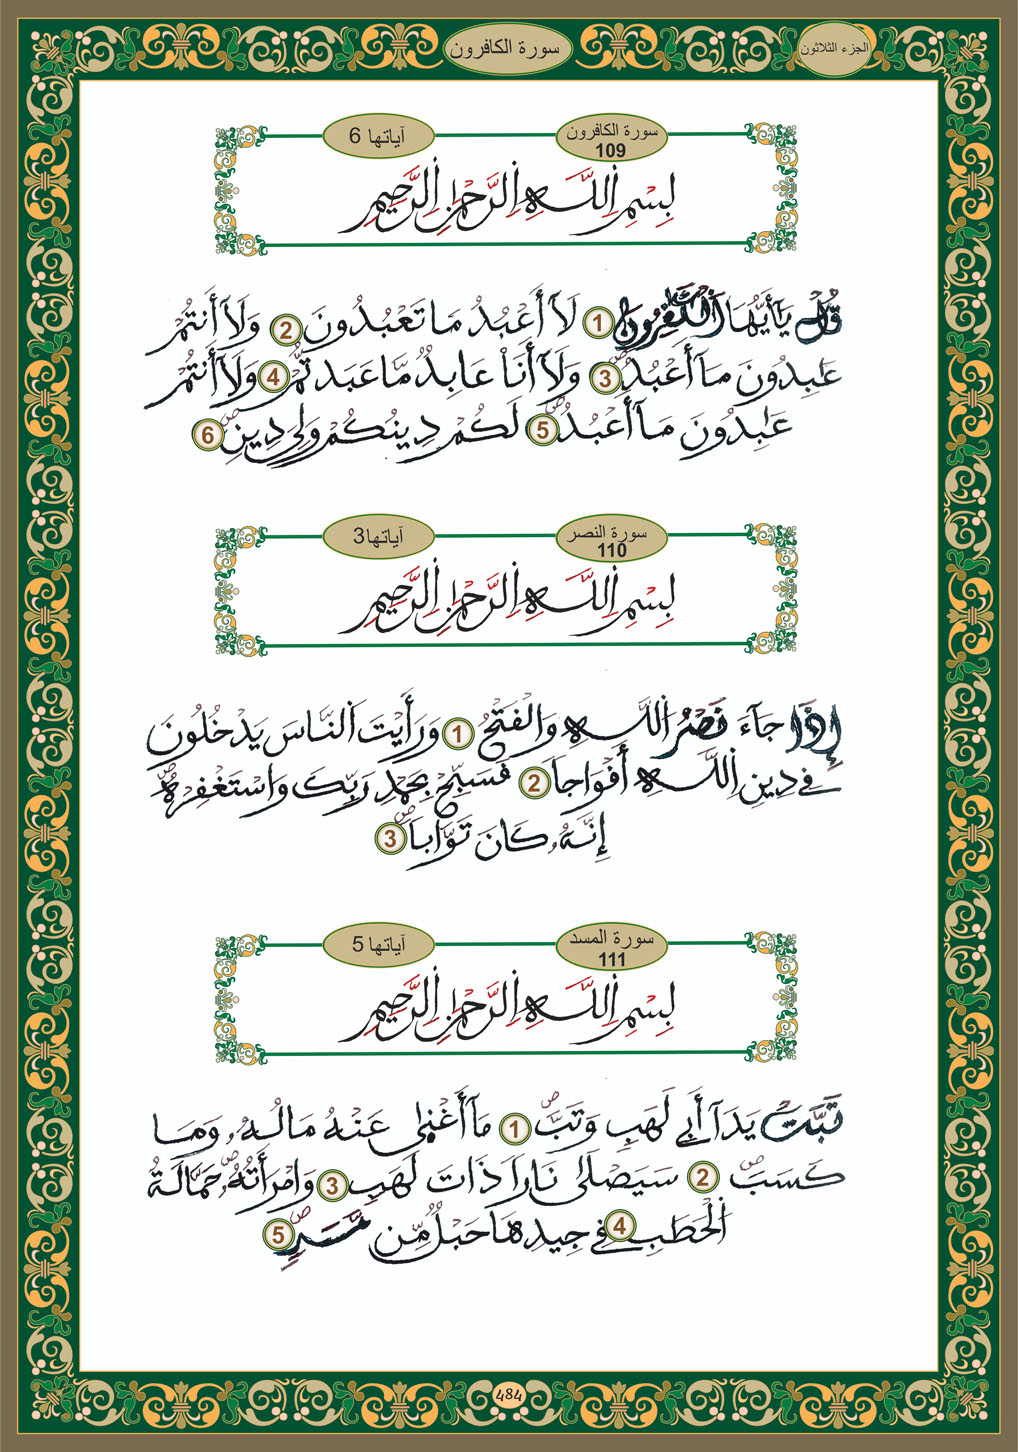 الجزء الثلاثون
سورة الكافرون
سورة الكافرون
109
آياتها 6
بِسْمِ اِللَّهِ اِلرَّحْمَٰنِ اِلرَّحِيمِ
قُلْ يَٰٓأَيُّهَا اَلْكَٰفِرُونَ 1 لَآ أَعْبُدُ مَا تَعْبُدُونَ 2 وَلَآ أَنتُمْ
عَٰبِدُونَ مَآ أَعْبُدُ 3 وَلَآ أَنَا عَابِدٌ مَّا عَبَدتُّمْ 4 وَلَآ أَنتُمْ
عَٰبِدُونَ مَآ أَعْبُدُ 5 لَكُمْ دِينُكُمْ وَلِي دِينِ 6
سورة النصر
110
آياتها 3
بِسْمِ اِللَّهِ اِلرَّحْمَٰنِ اِلرَّحِيمِ
إِذَا جَآءَ نَصْرُ اُللَّهِ وَالْفَتْحُ 1 وَرَأَيْتَ اَلنَّاسَ يَدْخُلُونَ
فِي دِينِ اِللَّهِ أَفْوَاجاً 2 فَسَبِّحْ بِحَمْدِ رَبِّكَ وَاسْتَغْفِرْهُ
إِنَّهُۥ كَانَ تَوَّاباً 3
سورة المسد
111
آياتها 5
بِسْمِ اِللَّهِ اِلرَّحْمَٰنِ اِلرَّحِيمِ
تَبَّتْ يَدَآ أَبِي لَهَبٍ وَتَبَّ 1 مَآ أَغْنَىٰ عَنْهُ مَالُهُۥ وَمَا
كَسَبَ 2 سَيَصْلَىٰ نَاراً ذَاتَ لَهَبٍ 3 وَامْرَأَتُهُۥ حَمَّالَةُ
اُلْحَطَبِ 4 فِي جِيدِهَا حَبْلٌ مِّن مَّسَدٍ 5
484